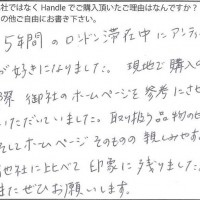 社ではなく Handle でご購入頂いたご理由はなんですか？
の他ご自由にお書き下さい。
5年間のロンドン滞在中にアンティ
が好きになりました。現地で購入の
際 御社のホームページを参考にさせ
いただいていました。取り扱う品物の
そしてホームページそのものの親しみやす
他社に比べて印象に残りました
またぜひお願いします。